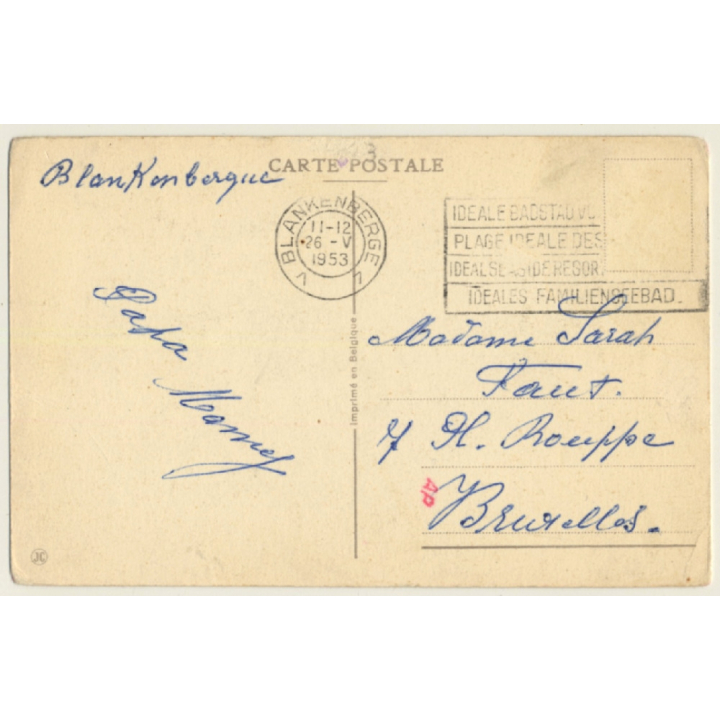 CARTE POSTALE
Blankenbergue
BLANKENBERGE
11-12
26 -V
1953
V V
IDEALE BADSTAD V
PLAGE IDEALE DES
IDEAL SEASIDE RESOR
IDEALES FAMILIENSEEBAD
Papa
Mamy
Imprimé en Belgique
Madame Sarah
Faut.
7 Pl. Rouppe
Bruxelles.
AP
JC